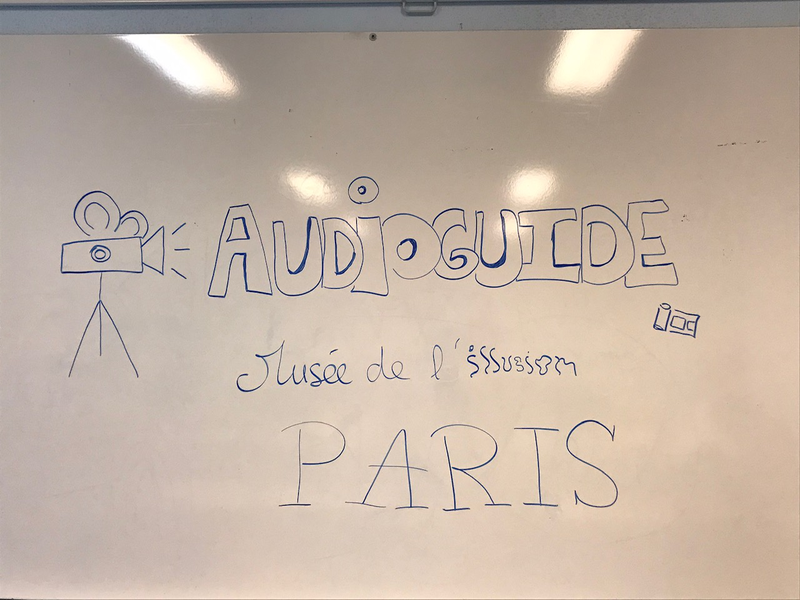 AUDiOGUIDE
Musée de l'illusion
PARIS